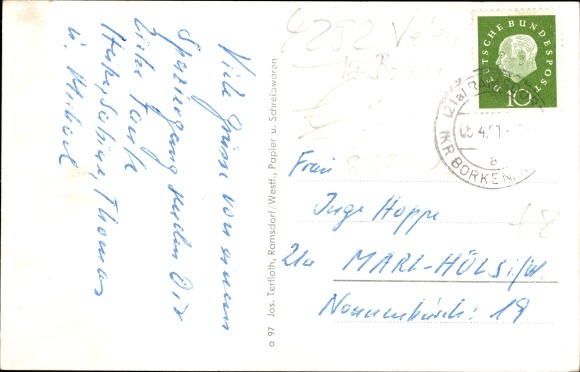 Viele Grüsse von einem
Spaziergang senden Dir
Liebe Tante
Heike, Sabine, Thomas
u. Michael
o 97 Jos. Terfloth, Ramsdorf/Westf., Papier u. Schreibwaren
4282 Velen
Kr. Borken
DEUTSCHE BUNDESPOST
10
(21a) RAMSDORF
05.4.61
a
(KR BORKEN
Frau
Inge Hoppe
21a MARL-HÜLS i/W.
Nonnenbusch: 19